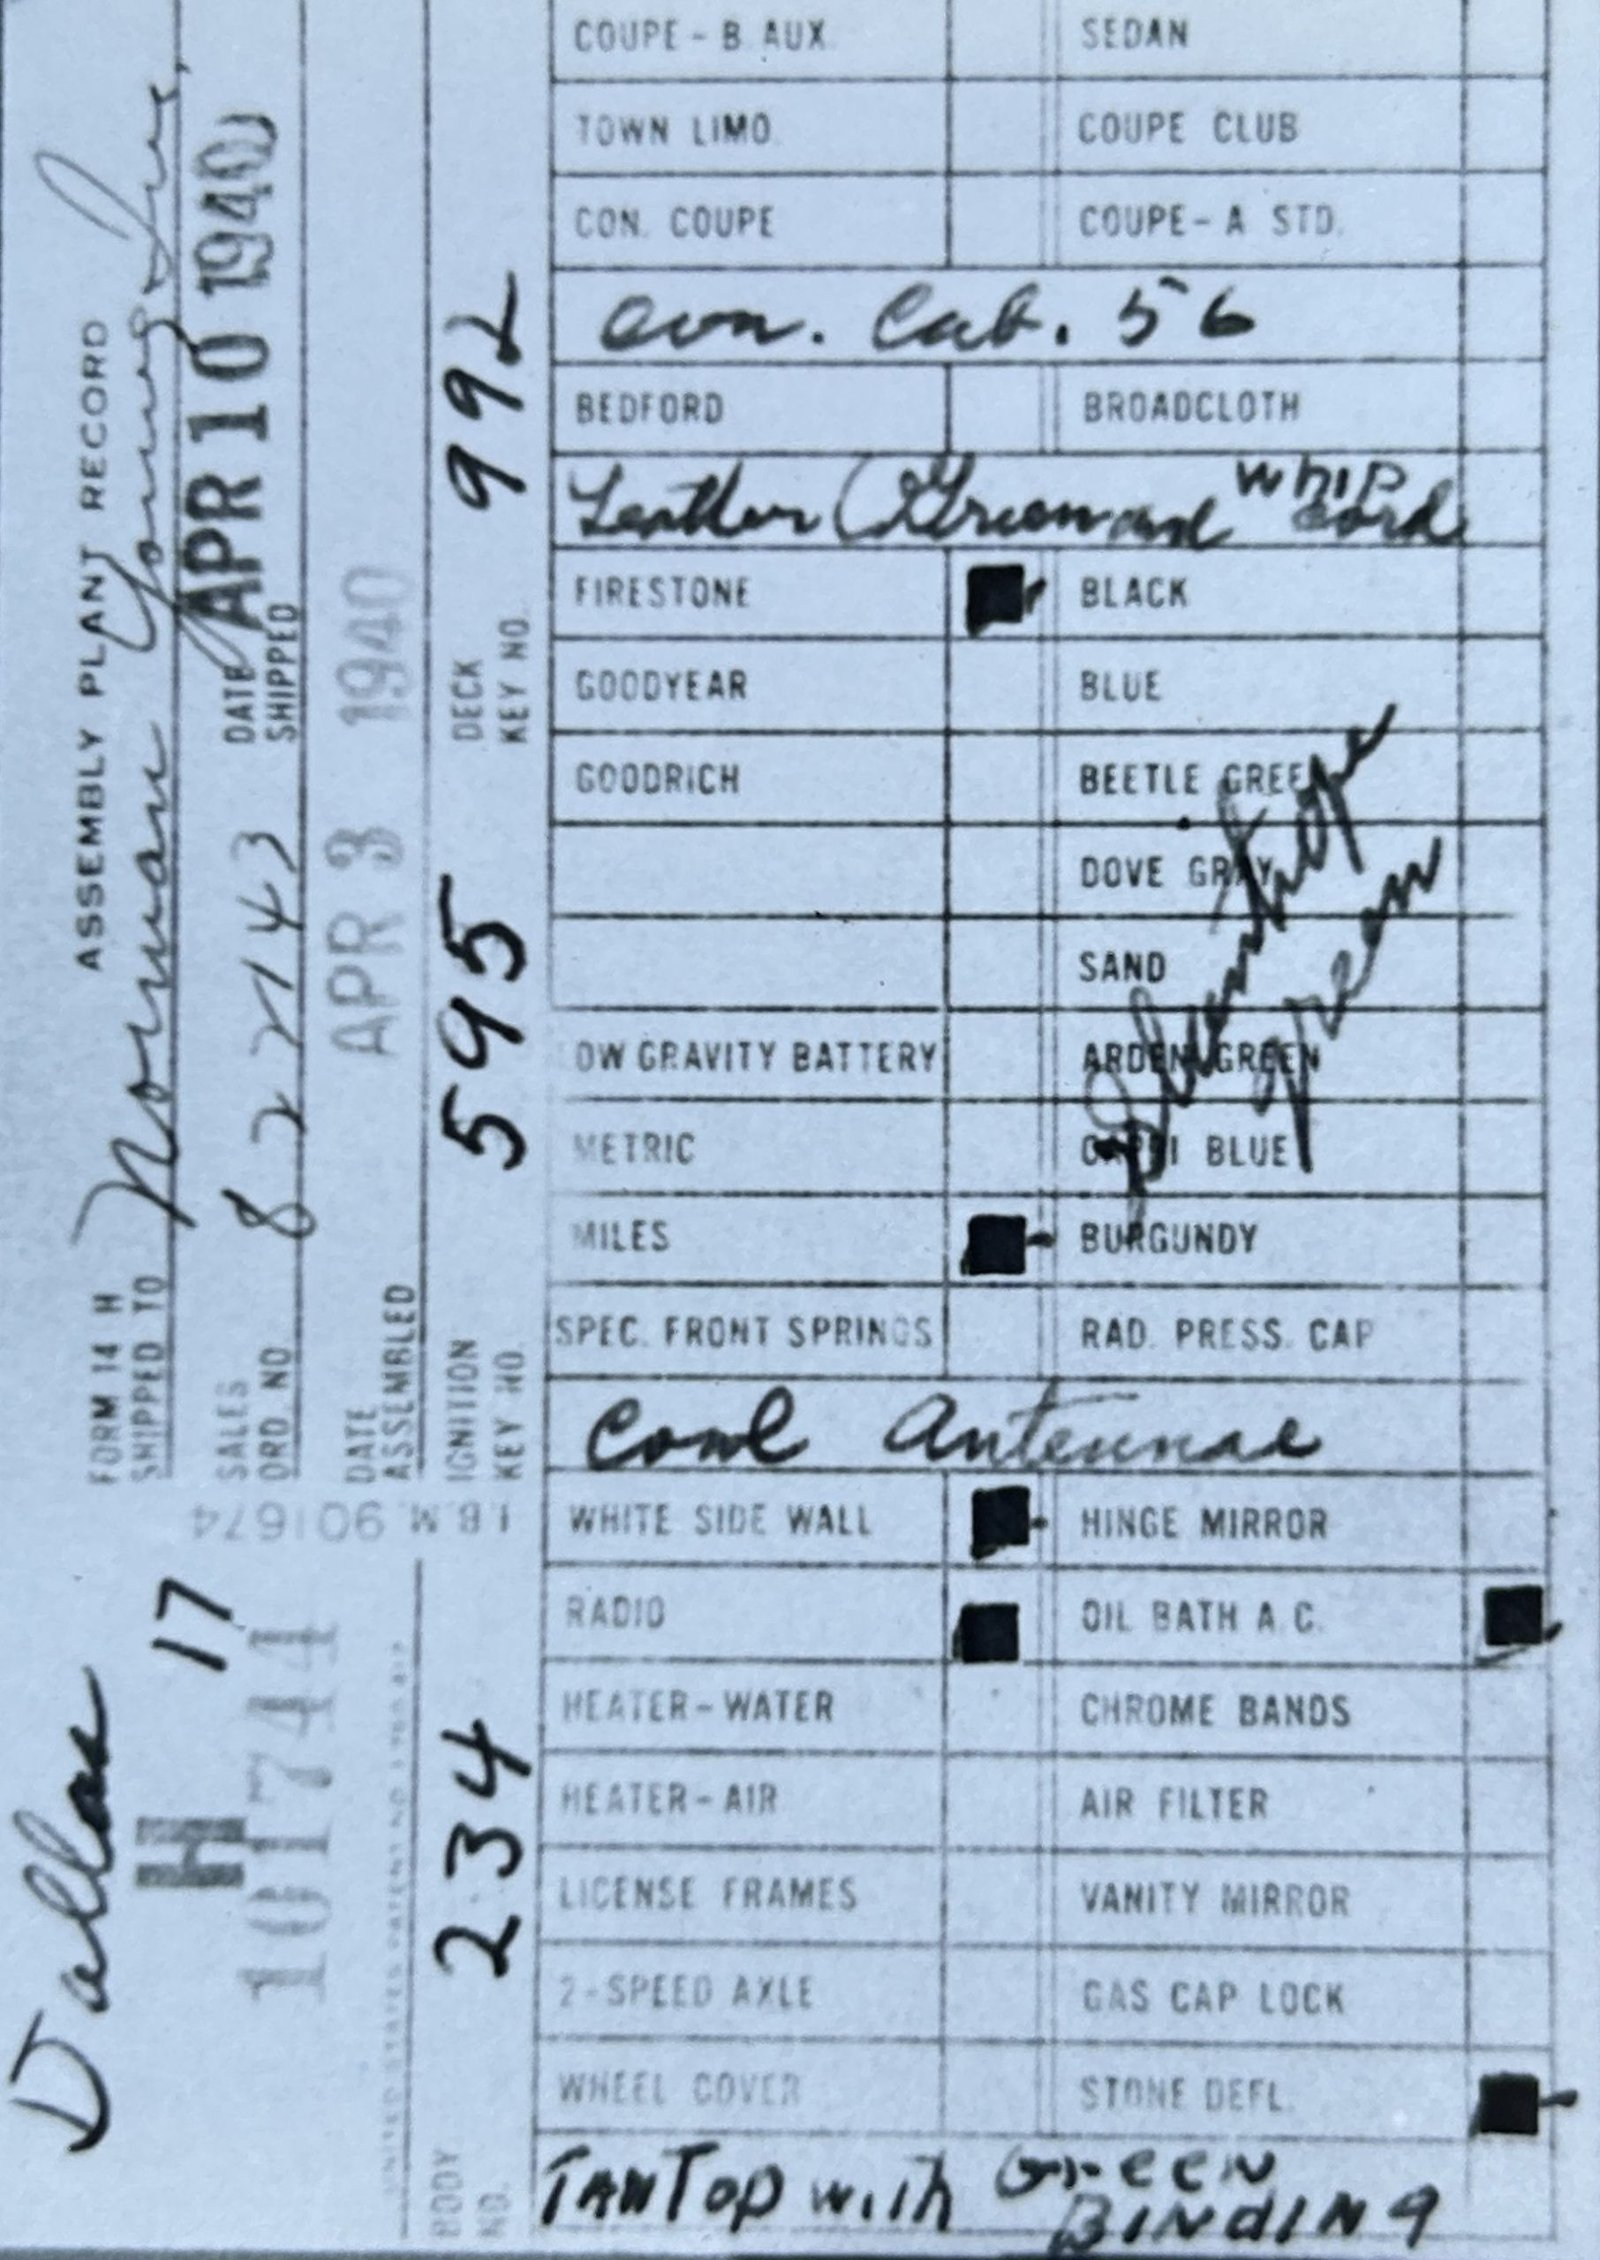 ASSEMBLY PLANT RECORD
FORM 14 H
SHIPPED TO Norman Young Inc,
SALES ORD. NO 822743
DATE SHIPPED APR 10 1940
DATE ASSEMBLED APR 3 1940
IGNITION KEY NO. 595
DECK KEY NO. 992
Dallas 17
H
101744
I.B.M. 901674
BODY NO. 234
COUPE - B AUX. SEDAN
TOWN LIMO. COUPE CLUB
CON. COUPE COUPE - A STD.
Con. Cab. 56
BEDFORD BROADCLOTH
Leather Green and whip cord
FIRESTONE BLACK
GOODYEAR BLUE
GOODRICH BEETLE GREEN
DOVE GRAY
SAND
OW GRAVITY BATTERY ARDEN GREEN
METRIC CAPRI BLUE
MILES BURGUNDY
green
SPEC. FRONT SPRINGS RAD. PRESS. CAP
Cowl Antennae
WHITE SIDE WALL HINGE MIRROR
RADIO OIL BATH A.C.
HEATER - WATER CHROME BANDS
HEATER - AIR AIR FILTER
LICENSE FRAMES VANITY MIRROR
2-SPEED AXLE GAS CAP LOCK
WHEEL COVER STONE DEFL.
TAN TOP with GREEN BINDING